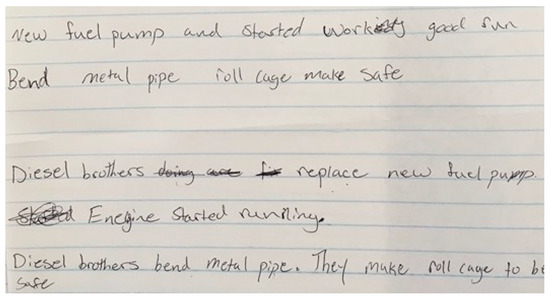 New fuel pump and started working good run
Bend metal pipe roll cage make safe
Diesel brothers doing are fix replace new fuel pump
Started Enegine started runniing.
Diesel brothers bend metal pipe. They make roll cage to be
safe